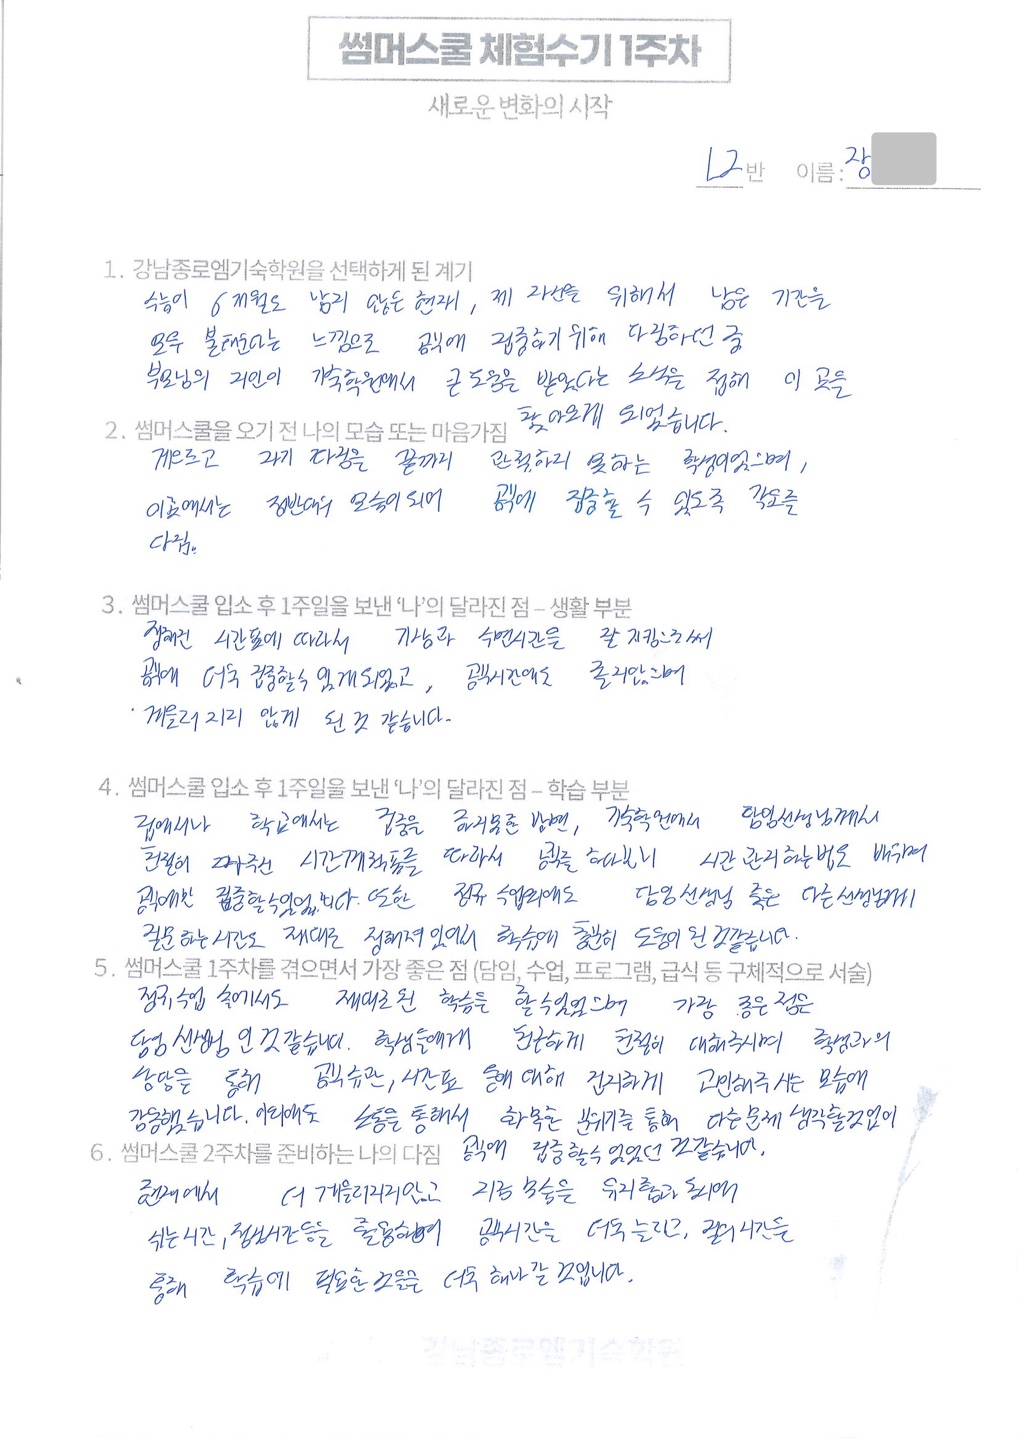 썸머스쿨 체험수기 1주차
새로운 변화의 시작
L2반 이름: 장
1. 강남종로엠기숙학원을 선택하게 된 계기
수능이 6개월도 남지 않은 현재, 제 자신을 위해서 남은 기간을
모두 불태운다는 느낌으로 공부에 집중하기 위해 다짐하던 중
부모님의 지인이 기숙학원에서 큰 도움을 받았다는 소식을 접해 이 곳을
찾아오게 되었습니다.
2. 썸머스쿨을 오기 전 나의 모습 또는 마음가짐
게으르고 자기 다짐을 끝까지 관철하지 못하는 학생이었으며,
이곳에서는 정반대의 모습이 되어 공부에 집중할 수 있도록 각오를
다짐.
3. 썸머스쿨 입소 후 1주일을 보낸 '나'의 달라진 점 – 생활 부분
정해진 시간표에 따라서 기상과 수면시간을 잘 지킴으로써
공부에 더욱 집중할수 있게 되었고, 공부시간에도 졸지않으며
게을러지지 않게 된 것 같습니다.
4. 썸머스쿨 입소 후 1주일을 보낸 '나'의 달라진 점 – 학습 부분
집에서나 학교에서는 집중을 하지못한 반면, 기숙학원에서 담임선생님께서
친절히 짜주신 시간계획표를 따라서 공부를 하다보니 시간 관리하는법도 배우며
공부에만 집중할수있었습니다. 또한 정규 수업외에도 담임 선생님 혹은 다른 선생님께
질문하는시간도 제대로 정해져 있어서 학습에 충분히 도움이 된 것같습니다.
5. 썸머스쿨 1주차를 겪으면서 가장 좋은 점 (담임, 수업, 프로그램, 급식 등 구체적으로 서술)
정규수업 속에서도 제대로된 학습을 할수있었으며 가장 좋은 점은
담임 선생님 인 것 같습니다. 학생들에게 친근하게 친절히 대해주시며 학생과의
상담을 통해 공부습관, 시간표 등에 대해 진지하게 고민해주시는 모습에
감동했습니다. 이외에도 소통을 통해서 화목한 분위기를 통해 다른문제 생각할것없이
공부에 집중할수있었던 것같습니다.
6. 썸머스쿨 2주차를 준비하는 나의 다짐
현재에서 더 게을러지지않고 지금 모습을 유지함과 동시에
쉬는시간, 점심시간 등을 활용하며 공부시간을 더욱 늘리고, 질의 시간을
통해 학습에 필요한 것들을 더욱 해나갈 것입니다.
강남종로엠기숙학원